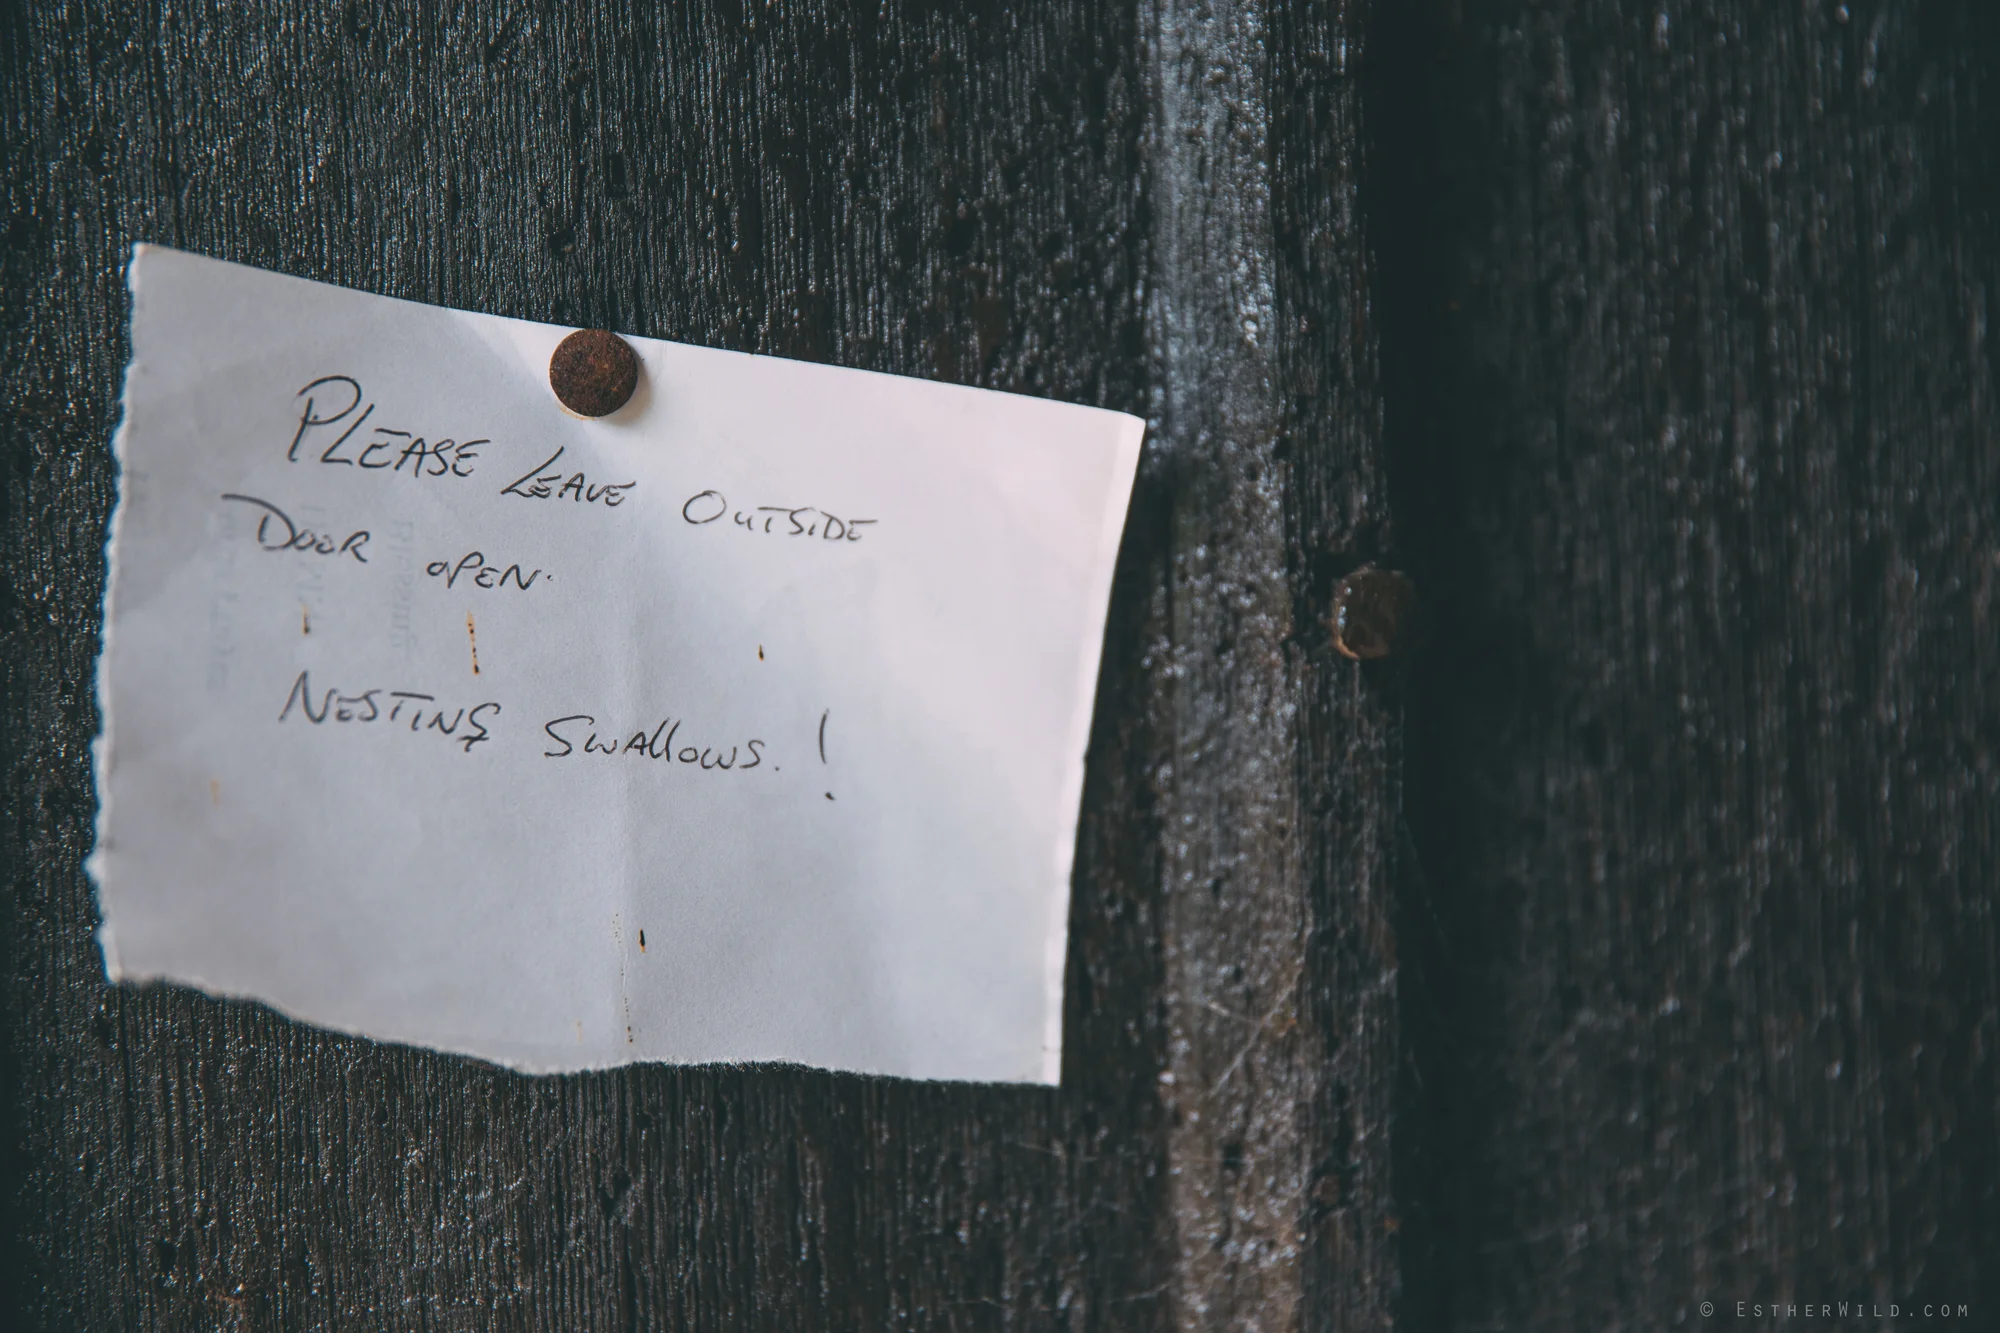 PLEASE LEAVE OUTSIDE
DOOR OPEN.
NESTING SWALLOWS. !
© ESTHERWILD.COM